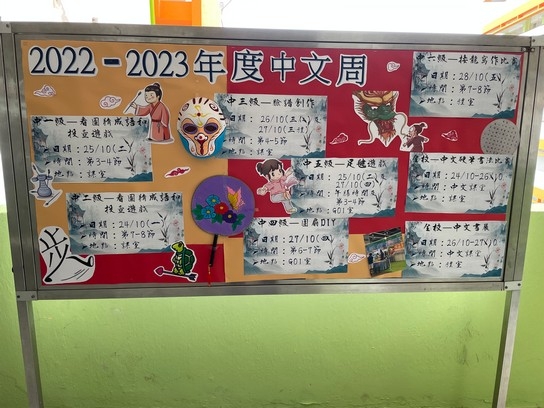 2022-2023年度中文周
中一級—看圖猜成語和
投壺遊戲
日期：25/10(二)
時間：第3-4節
地點：課室
中二級—看圖猜成語和
投壺遊戲
日期：24/10(一)
時間：第7-8節
地點：課室
中三級—臉譜制作
日期：26/10(三)及
27/10(四)
時間：第4-5節
地點：課室
中五級—足毽遊戲
日期：25/10(二)及
27/10(四)
時間：午膳時間及
第3-4節
地點：G01室
中四級—團扇DIY
日期：27/10(四)
時間：第6-7節
地點：G01室
中六級—接龍寫作比賽
日期：28/10(五)
時間：第7-8節
地點：禮堂
全校—中文硬筆書法比賽
日期：24/10-26/10
時間：中文課室
地點：課室
全校—中文書展
日期：26/10-27/10
時間：中文課室
地點：禮堂
步